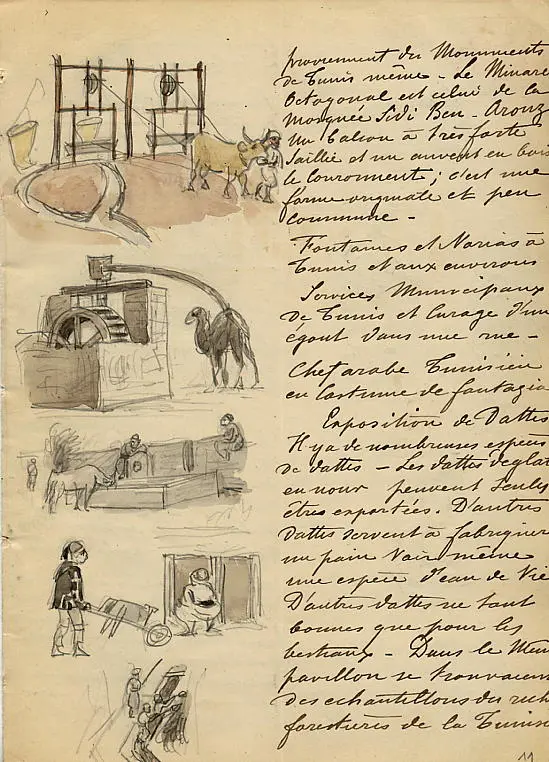 proviennent du Monuments
de Tunis même - Le Minare
Octogonal est celui de la
Mosquée Sidi Ben-Arouz
Un balcon à très forte
Saillie et un auvent en bois
le Couronnent ; c'est une
forme originale et peu
commune -
Fontaines et Norias à
Tunis et aux environs
Services Municipaux
de Tunis et Curage d'un
égout dans une rue -
Chef arabe Tunisien
en Costume de fantazia
Exposition de Dattes
Il y a de nombreuses espèces
de dattes - Les dattes deglat
en nour peuvent seules
êtres exportées. D'autres
dattes servent à fabriquer
un pain noir même
une espèce d'eau de Vie
D'autres dattes ne sont
bonnes que pour les
bestiaux - Dans le Même
pavillon se trouvaient
des echantillons du rich
forestières de la Tunisie
11